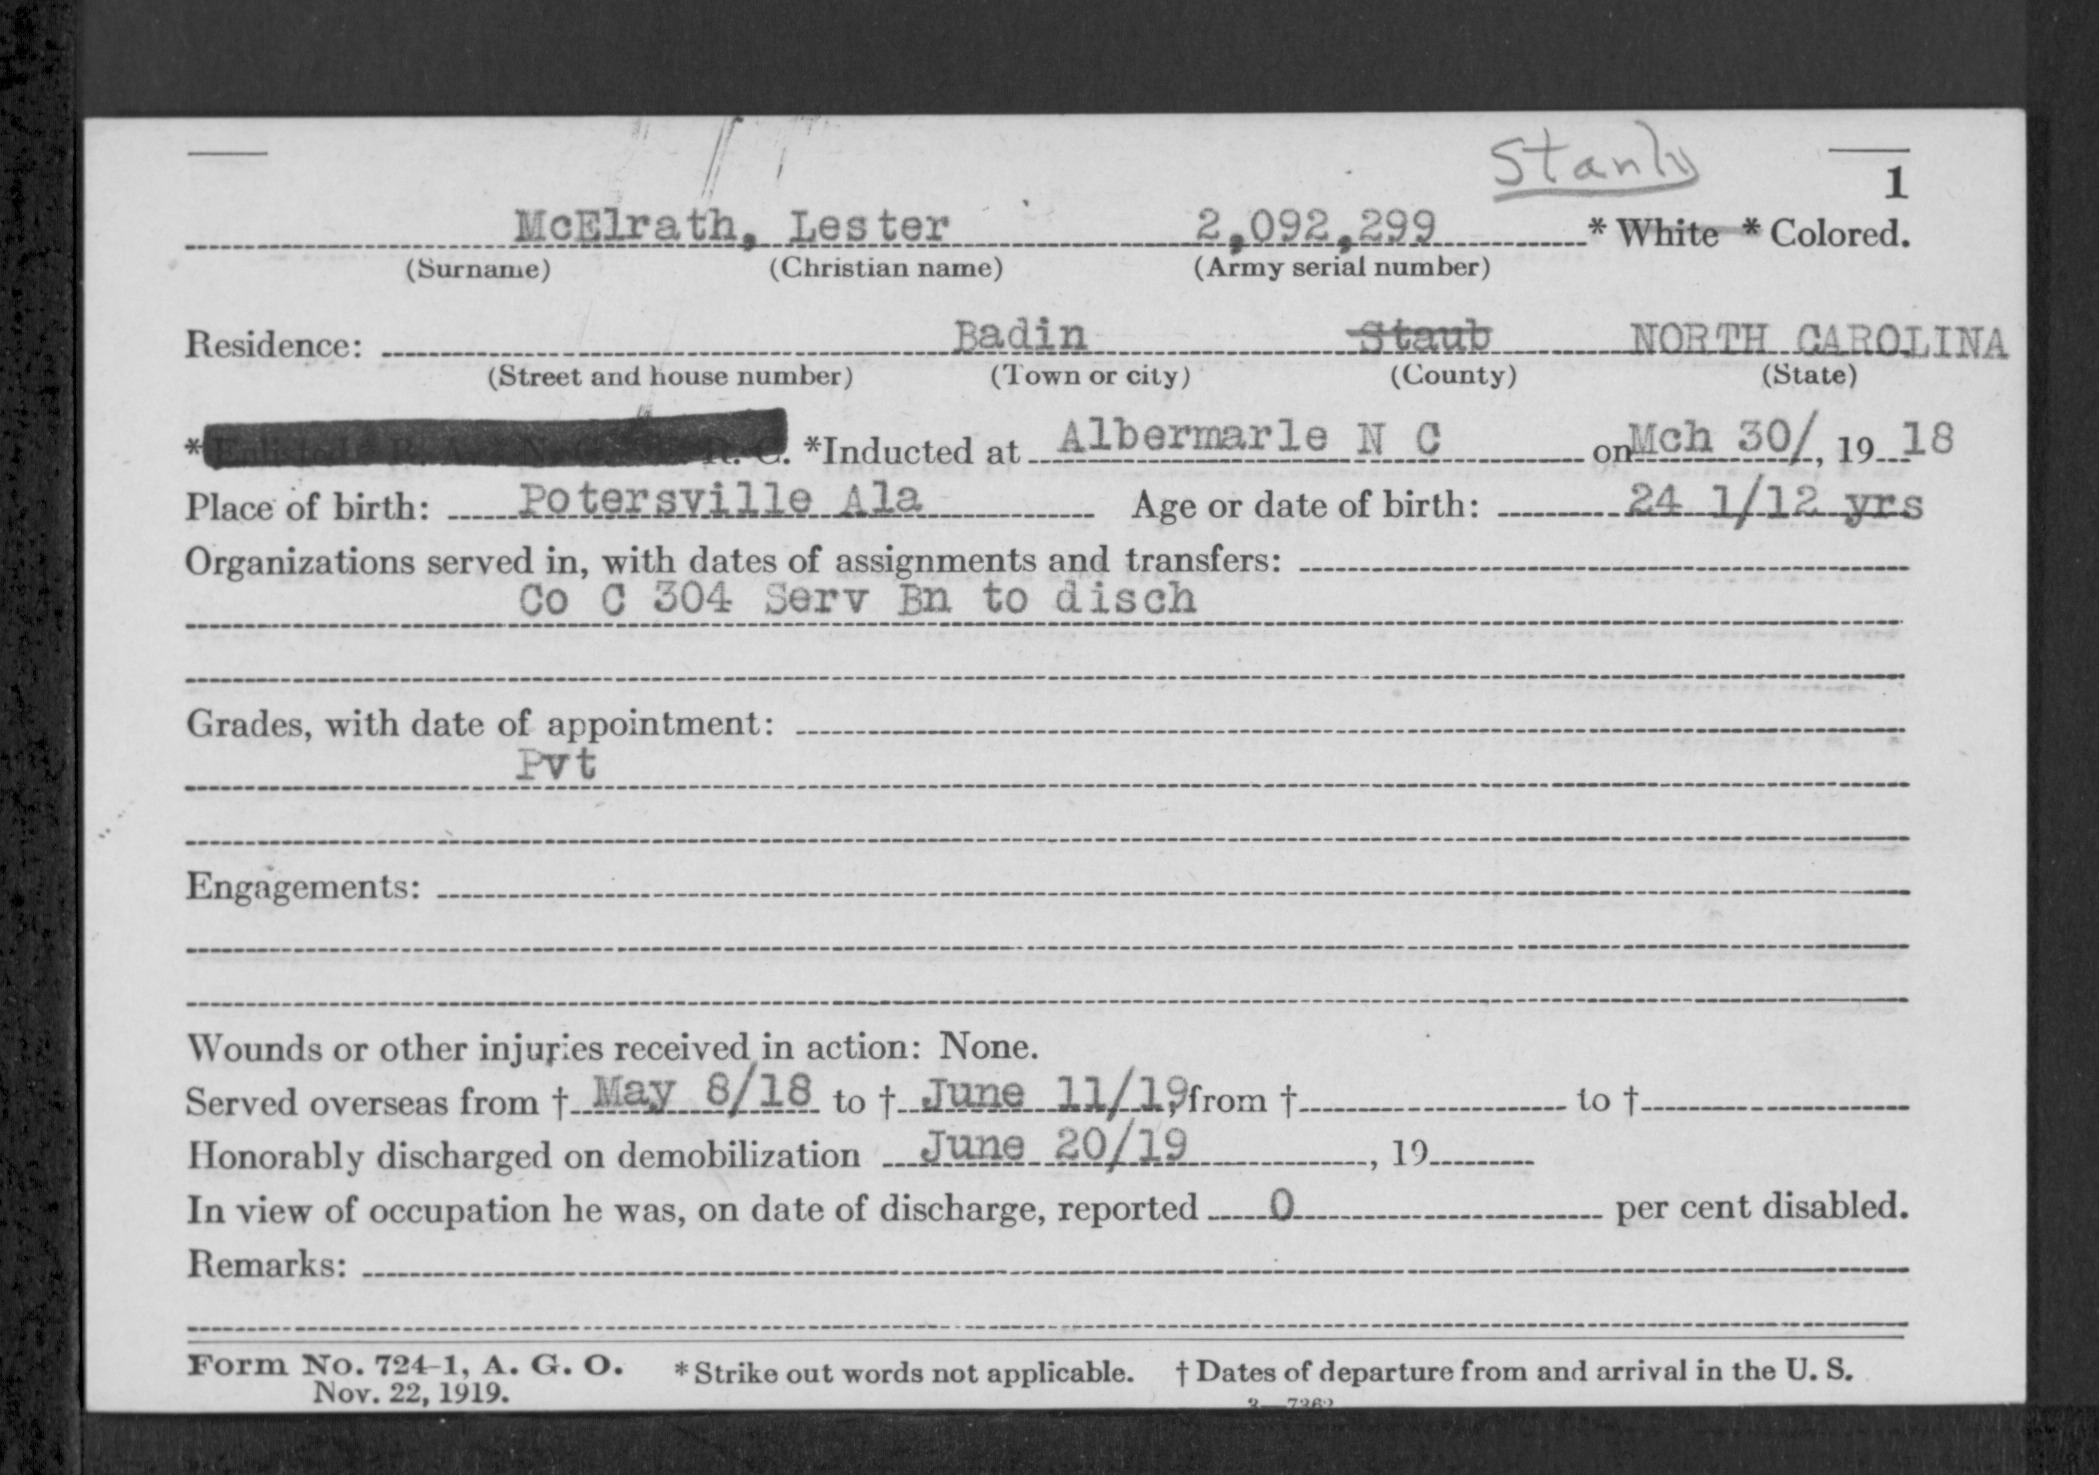 Stanly
1
McElrath, Lester 2,092,299 * White * Colored.
(Surname) (Christian name) (Army serial number)
Residence: Badin Staub NORTH CAROLINA
(Street and house number) (Town or city) (County) (State)
* Enlisted * R. A. * N. G. R. C. *Inducted at Albermarle N C on Mch 30/, 19 18
Place of birth: Potersville Ala Age or date of birth: 24 1/12 yrs
Organizations served in, with dates of assignments and transfers:
Co C 304 Serv Bn to disch
Grades, with date of appointment:
Pvt
Engagements:
Wounds or other injuries received in action: None.
Served overseas from † May 8/18 to † June 11/19, from † to †
Honorably discharged on demobilization June 20/19, 19
In view of occupation he was, on date of discharge, reported 0 per cent disabled.
Remarks:
Form No. 724-1, A. G. O. * Strike out words not applicable. † Dates of departure from and arrival in the U. S.
Nov. 22, 1919.